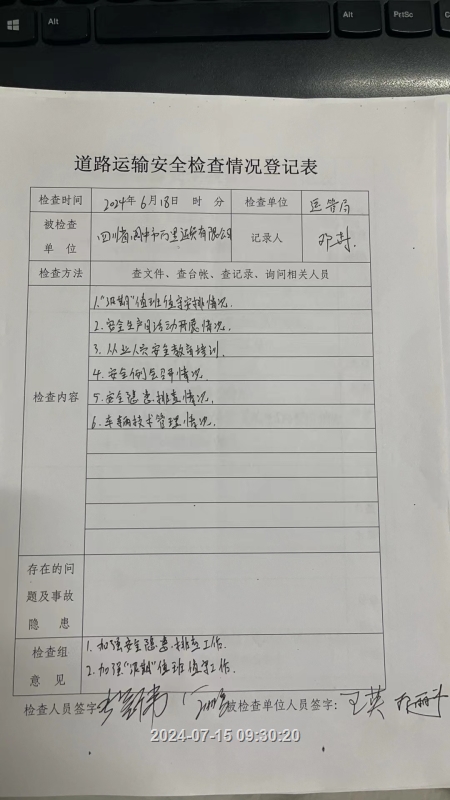 Alt
PrtSc
道路运输安全检查情况登记表
检查时间 2024年6月18日 时 分 检查单位 运管局
被检查单位 四川省阆中市万里运贸有限公司 记录人
检查方法 查文件、查台帐、查记录、询问相关人员
检查内容
1."汛期"值班值守安排情况.
2.安全生产月活动开展情况.
3.从业人员安全教育培训.
4.安全例会召开情况.
5.安全隐患排查情况.
6.车辆技术管理情况.
存在的问题及事故隐患
检查组意见
1.加强安全隐患排查工作.
2.加强"汛期"值班值守工作.
检查人员签字: 被检查单位人员签字: 王英
2024-07-15 09:30:20